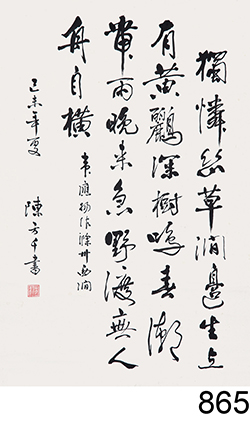 獨憐幽草澗邊生上
有黃鸝深樹鳴春潮
帶雨晚来急野渡無人
舟自橫
韋應物詩滁州西澗
己未年夏
陳方千書
865